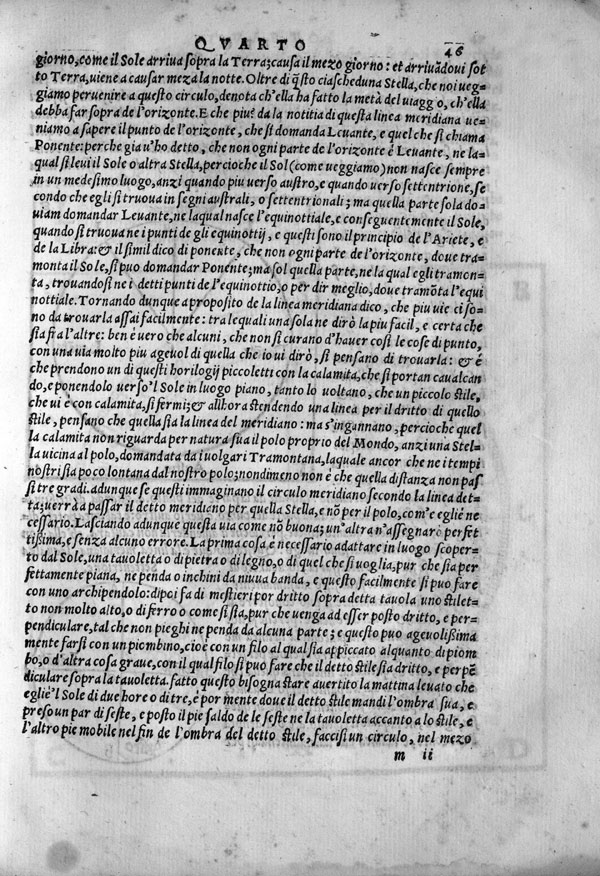 QVARTO 46
giorno, come il Sole arriua sopra la Terra; causa il mezo giorno: et arriuādoui sot
to Terra, uiene a causar meza la notte. Oltre di q̄sto ciascheduna Stella, che noi ueg
giamo peruenire a questo circulo, denota ch'ella ha fatto la metà del uiaggio, ch'ella
debba far sopra de l'orizonte. E che piu? da la notitia di questa linea meridiana ue-
niamo a sapere il punto de l'orizonte, che si domanda Leuante, e quel che si chiama
Ponente: perche gia u'ho detto, che non ogni parte de l'orizonte è Leuante, ne la-
qual si leui il Sole o altra Stella, percioche il Sol (come ueggiamo) non nasce sempre
in un medesimo luogo, anzi quando piu uerso austro, e quando uerso settentrione, se
condo che egli si truoua in segni australi, o settentrionali; ma quella parte sola do-
uiam domandar Leuante, ne laqual nasce l'equinottiale, e conseguentemente il Sole,
quando si truoua ne i punti de gli equinottij, e questi sono il principio de l'Ariete, e
de la Libra: & il simil dico di ponente, che non ogni parte de l'orizonte, doue tra-
monta il Sole, si puo domandar Ponente; ma sol quella parte, ne la qual egli tramon-
ta, trouandosi ne i detti punti de l'equinottio, o per dir meglio, doue tramōta l'equi
nottiale. Tornando dunque a proposito de la linea meridiana dico, che piu uie ci so-
no da trouarla assai facilmente: tra lequali una sola ne dirò la piu facil, e certa che
sia fra l'altre: ben è uero che alcuni, che non si curano d'hauer così le cose di punto,
con una uia molto piu ageuol di quella che io ui dirò, si pensano di trouarla: & è
che prendono un di questi horilogij piccoletti con la calamita, che si portan caualcan
do, e ponendolo uerso'l Sole in luogo piano, tanto lo uoltano, che un piccolo stile,
che ui è con calamita, si fermi; & allhora stendendo una linea per il dritto di quello
stile, pensano che quella sia la linea del meridiano: ma s'ingannano, percioche quel
la calamita non riguarda per natura sua il polo proprio del Mondo, anzi una Stel-
la uicina al polo, domandata da i uolgari Tramontana, laquale ancor che ne i tempi
nostri sia poco lontana dal nostro polo; nondimeno non è che quella distanza non pas
si tre gradi. adunque se questi immaginano il circulo meridiano secondo la linea det-
ta; uerrà a passar il detto meridiano per quella Stella, e nō per il polo, com'e egliè ne
cessario. Lasciando adunque questa uia come nō buona; un'altra n'assegnarò perfet
tißima, e senza alcuno errore. La prima cosa è necessario adattare in luogo scoper-
to dal Sole, una tauoletta o di pietra o di legno, o di quel che si uoglia, pur che sia per
fettamente piana, ne penda o inchini da niuna banda, e questo facilmente si puo fare
con uno archipendolo: dipoi fa di mestieri por dritto sopra detta tauola uno stilet-
to non molto alto, o di ferro o come si sia, pur che uenga ad esser posto dritto, e per-
pendiculare, tal che non pieghi ne penda da alcuna parte; e questo puo ageuolißima
mente farsi con un piombino, cioè con un filo al qual sia appiccato alquanto di piom-
bo, o d'altra cosa graue, con il qual filo si puo fare che il detto stile sia dritto, e perpē
diculare sopra la tauoletta. fatto questo bisogna stare auertito la mattina leuato che
egliè'l Sole di due hore o di tre, è por mente doue il detto stile mandi l'ombra sua, e
preso un par di seste, e posto il piè saldo de le seste ne la tauoletta accanto a lo stile, e
l'altro piè mobile nel fin de l'ombra del detto stile, faccisi un circulo, nel mezo
m ii